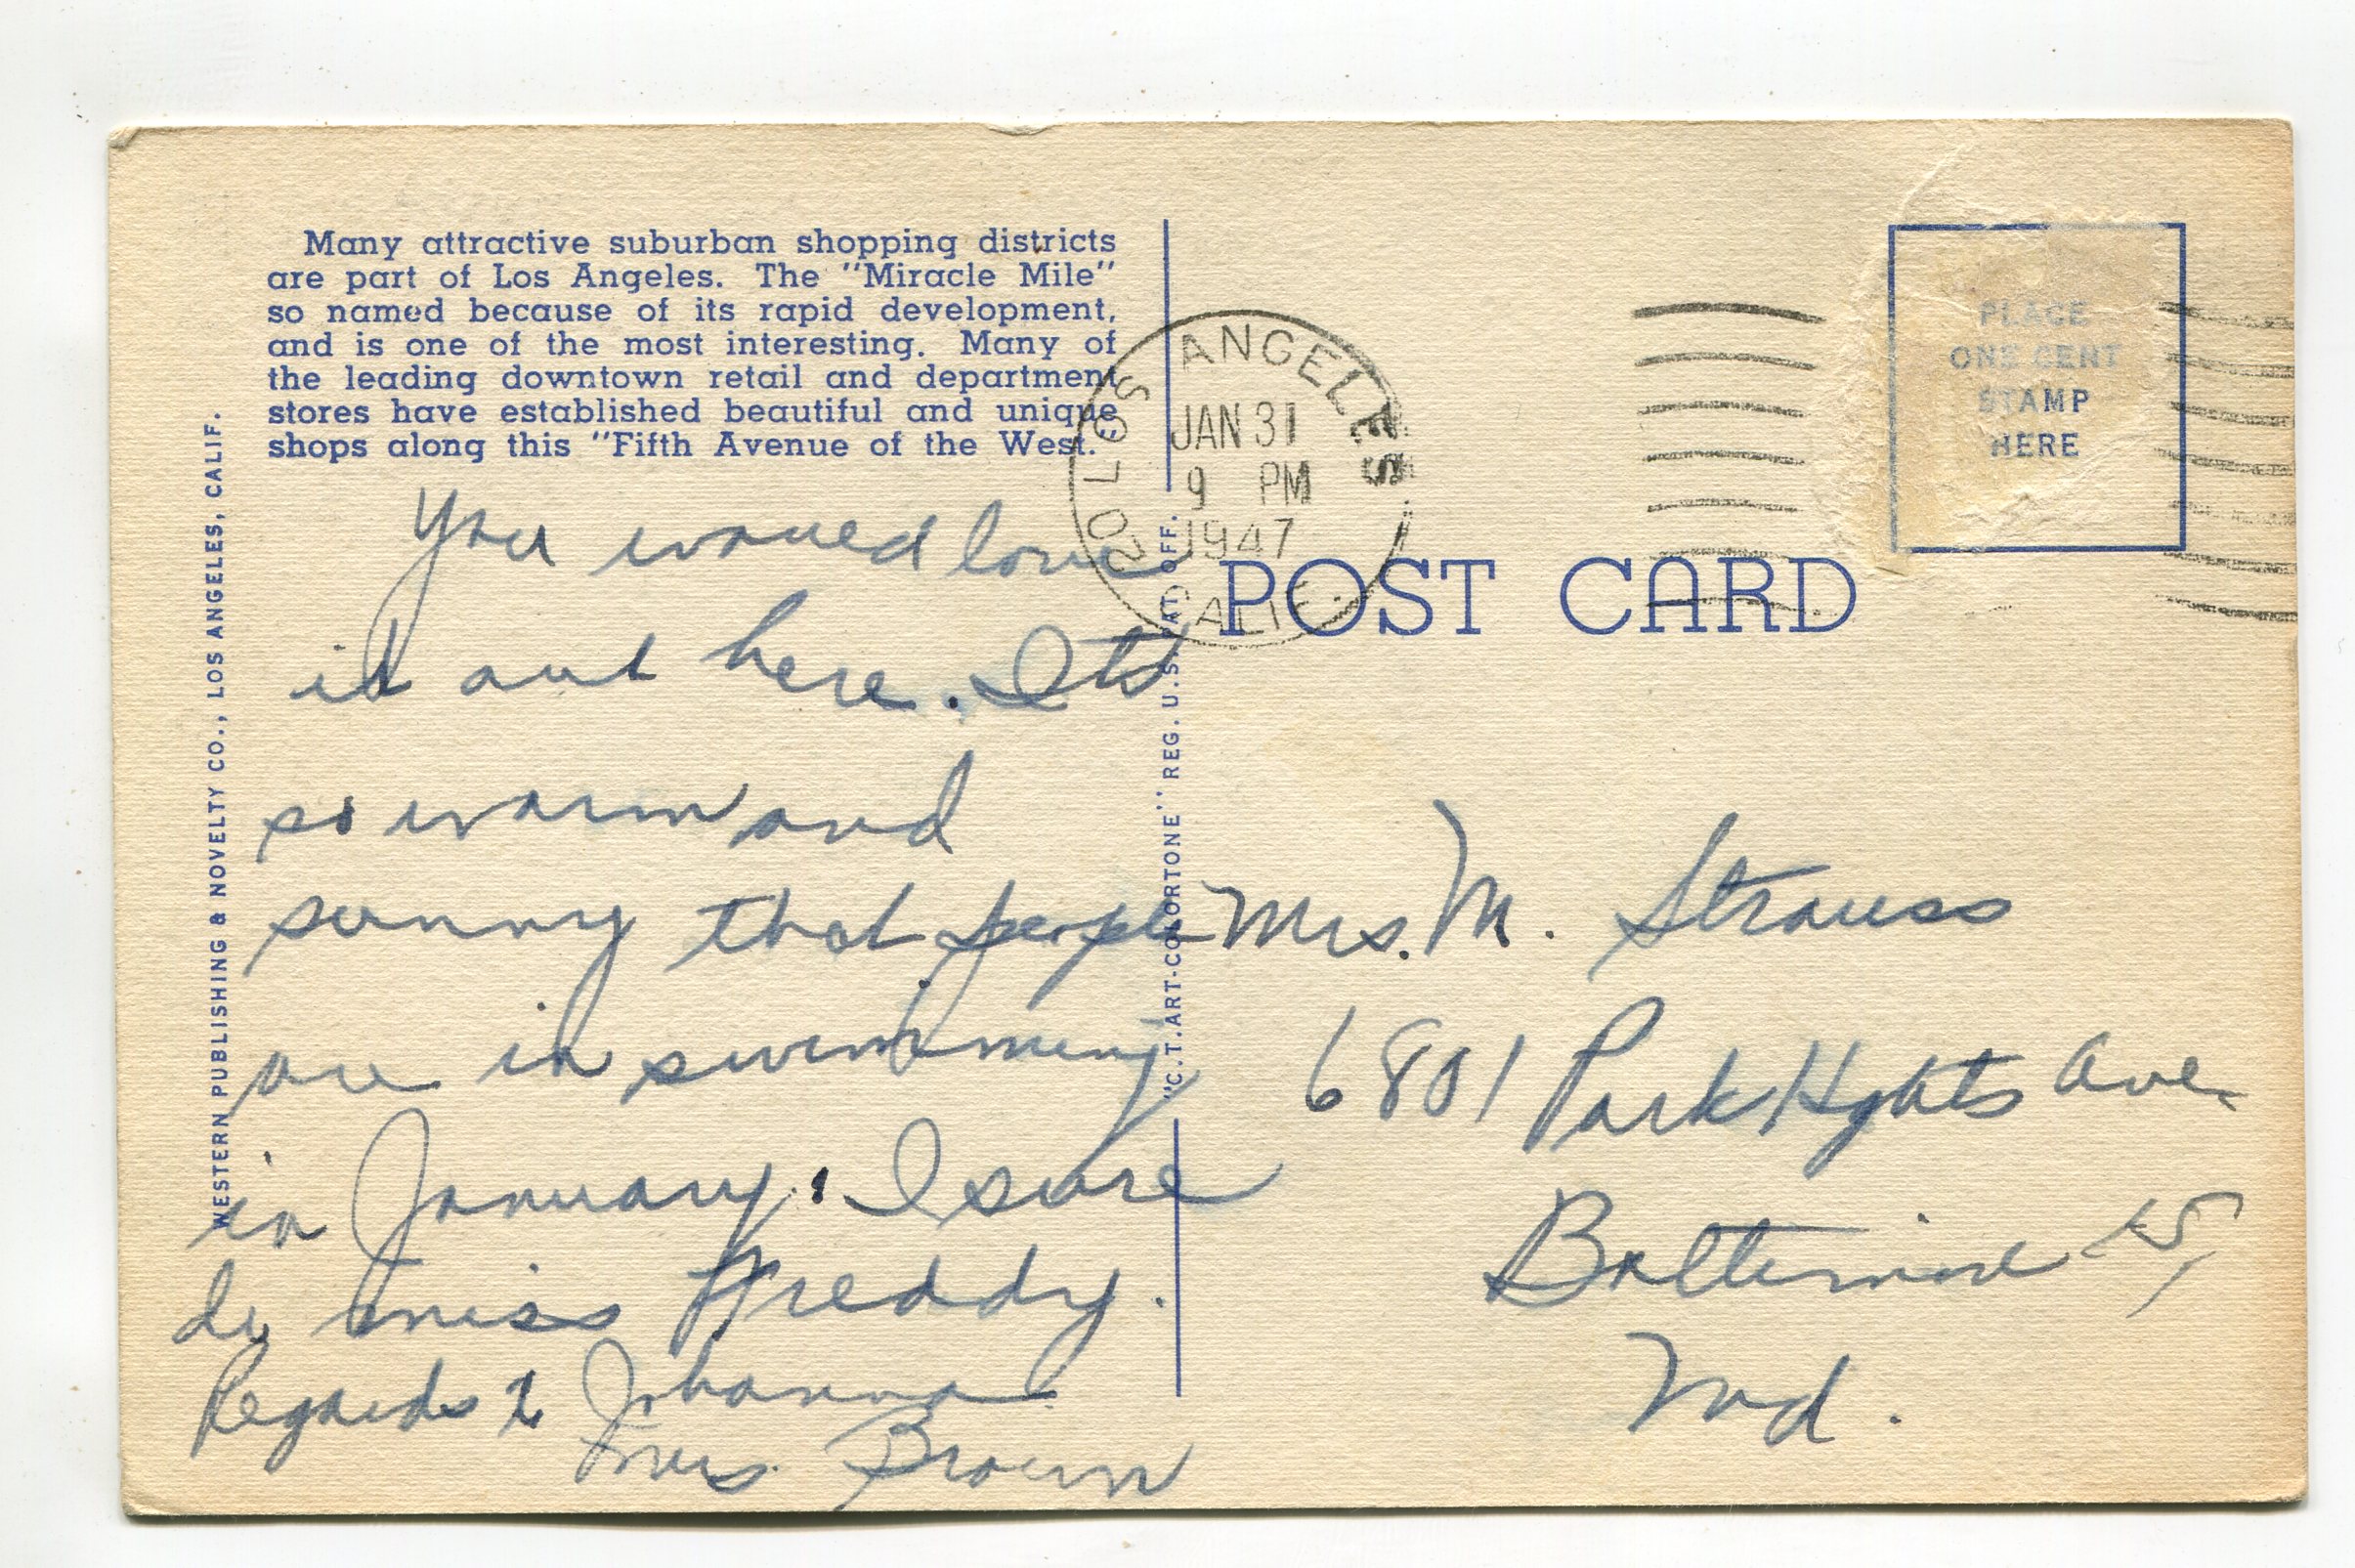 Many attractive suburban shopping districts
are part of Los Angeles. The "Miracle Mile"
so named because of its rapid development,
and is one of the most interesting. Many of
the leading downtown retail and department
stores have established beautiful and unique
shops along this "Fifth Avenue of the West."
WESTERN PUBLISHING & NOVELTY CO., LOS ANGELES, CALIF.
You would love
it out here. Its
so warm and
sunny that people
are in swimming
in January. I sure
do miss Freddy.
Regards to Johanna
Mrs. Brown
"C.T. ART-COLORTONE" REG. U.S. PAT. OFF.
LOS ANGELES
JAN 31
9 PM
1947
CALIF.
PLACE
ONE CENT
STAMP
HERE
POST CARD
Mrs. M. Strauss
6801 Park Hghts Ave.
Baltimore 15,
Md.